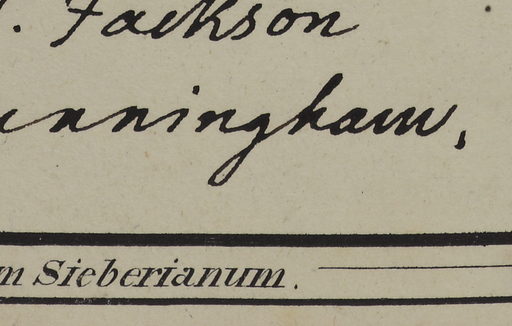 . Jackson
unningham.
m Sieberianum.